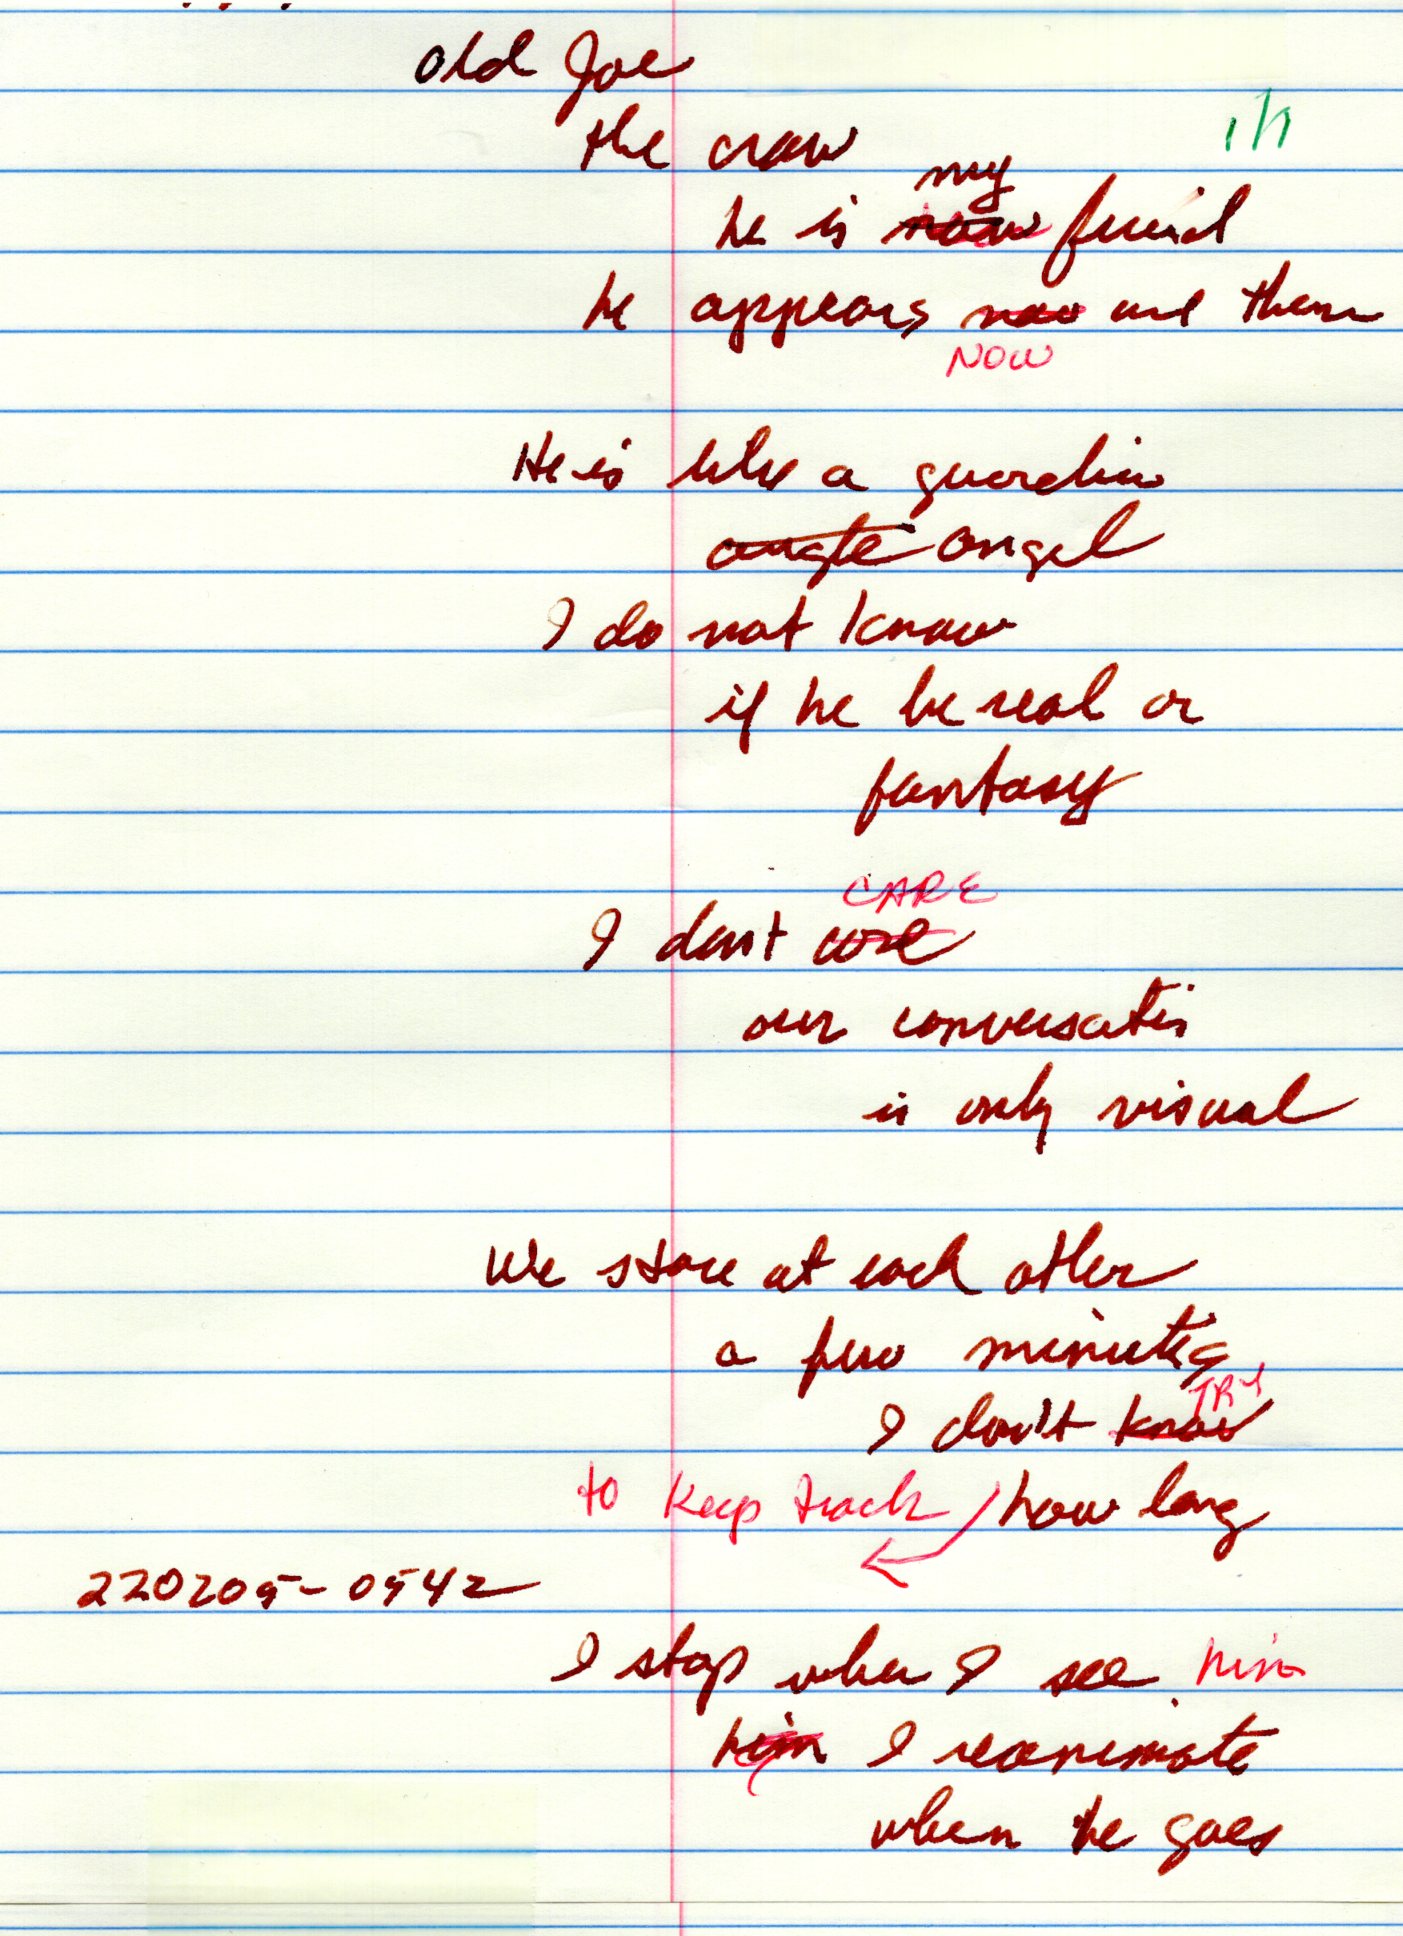 Old Joe
the crow
my
he is now friend
he appears now and then
NOW
He is like a guardian
angle angel
I do not know
if he be real or
fantasy
CARE
I don't care
our conversation
is only visual
We stare at each other
a few minutes
TRY
I don't know
to keep track how long
220205-0542
I stop when I see him
him I reanimate
when he goes